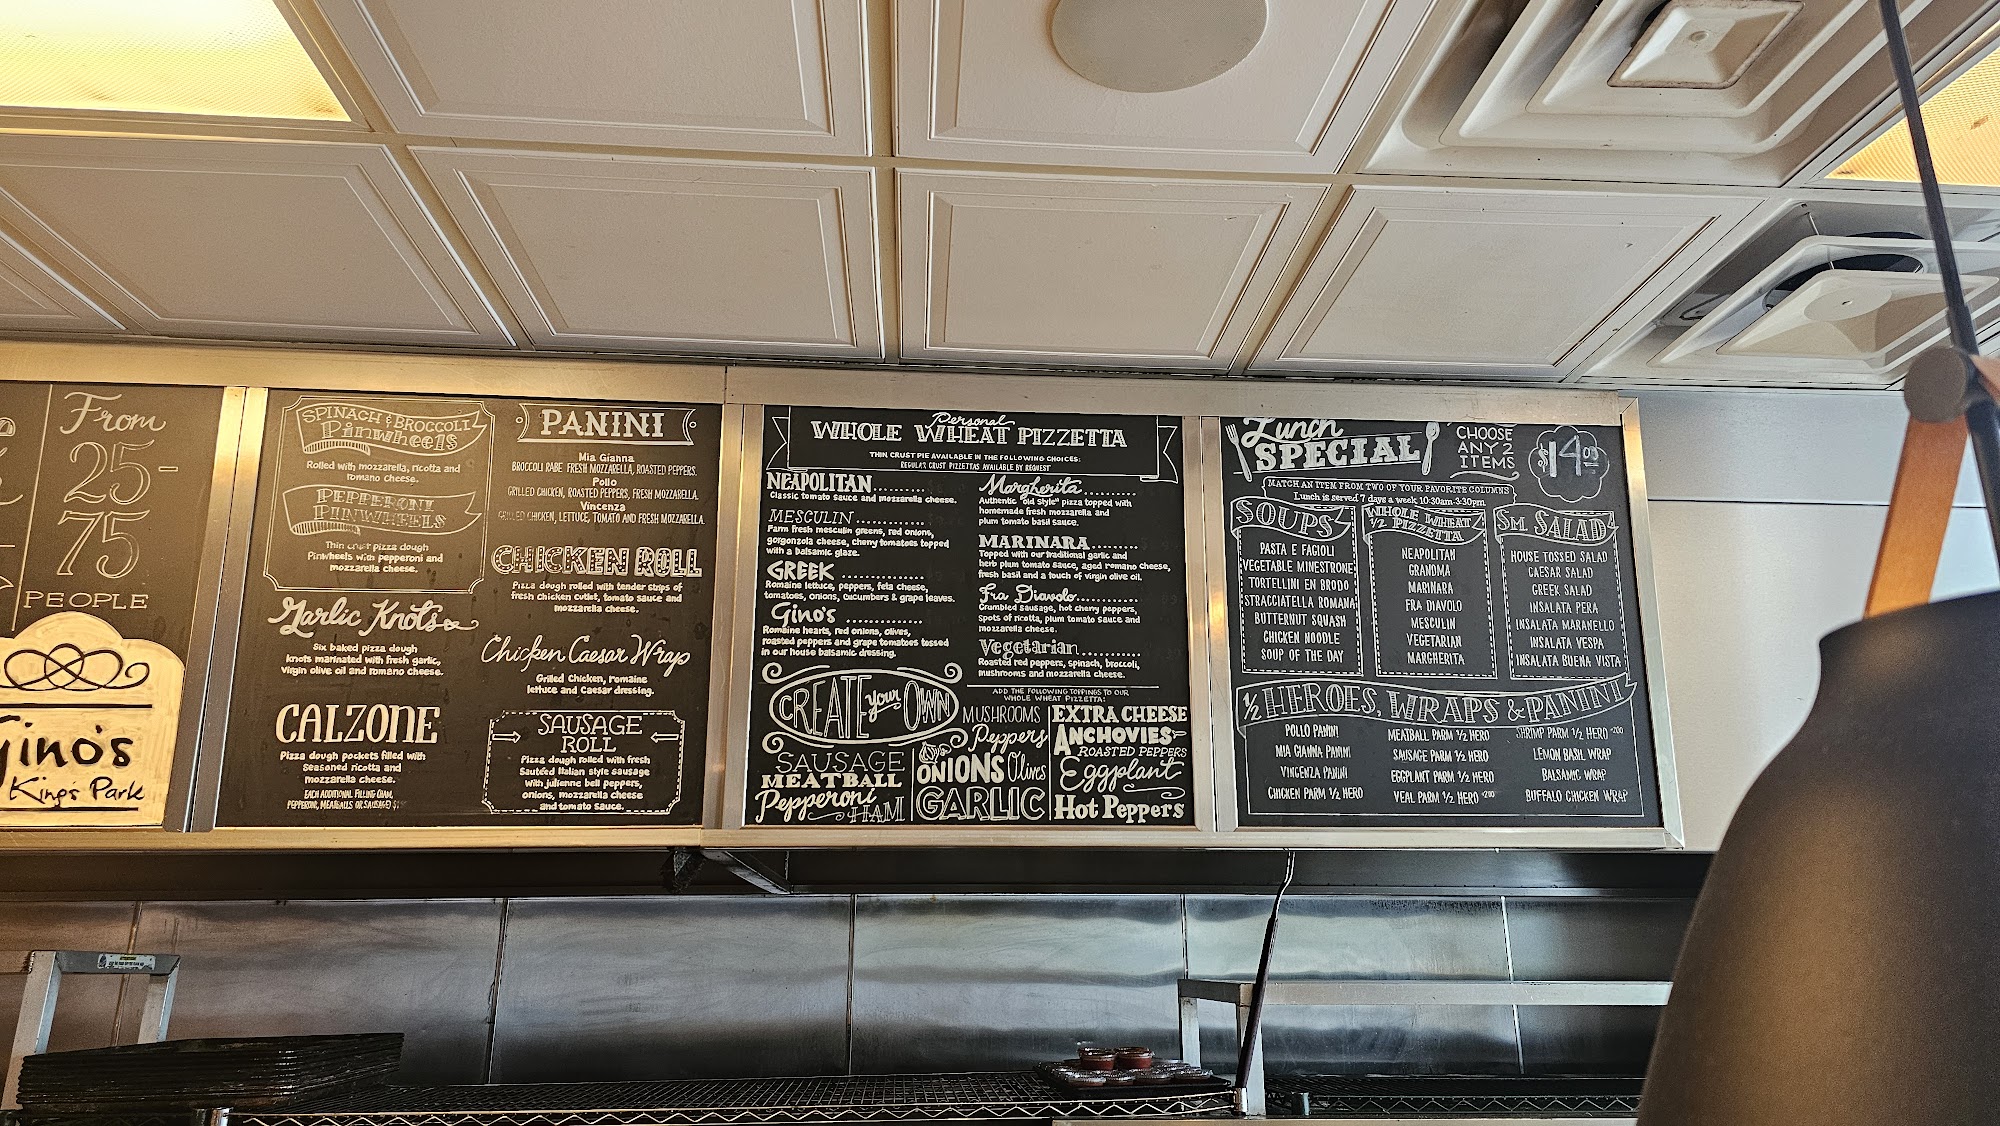 From
25-
75
PEOPLE
Gino's
Kings Park
SPINACH & BROCCOLI
Pinwheels
Rolled with mozzarella, ricotta and
romano cheese.
PEPPERONI
PINWHEELS
Thin crust pizza dough
Pinwheels with pepperoni and
mozzarella cheese.
Garlic Knots
Six baked pizza dough
knots marinated with fresh garlic,
virgin olive oil and romano cheese.
CALZONE
Pizza dough pockets filled with
seasoned ricotta and
mozzarella cheese.
EACH ADDITIONAL FILLING (HAM,
PEPPERONI, MEATBALLS OR SAUSAGE)
PANINI
Mia Gianna
BROCCOLI RABE FRESH MOZZARELLA, ROASTED PEPPERS.
Pollo
GRILLED CHICKEN, ROASTED PEPPERS, FRESH MOZZARELLA.
Vincenza
GRILLED CHICKEN, LETTUCE, TOMATO AND FRESH MOZZARELLA.
CHICKEN ROLL
Pizza dough rolled with tender strips of
fresh chicken cutlet, tomato sauce and
mozzarella cheese.
Chicken Caesar Wrap
Grilled Chicken, romaine
lettuce and Caesar dressing.
SAUSAGE
ROLL
Pizza dough rolled with fresh
Sautéed Italian style sausage
with julienne bell peppers,
onions, mozzarella cheese
and tomato sauce.
Personal
WHOLE WHEAT PIZZETTA
THIN CRUST PIE AVAILABLE IN THE FOLLOWING CHOICES:
REGULAR CRUST PIZZETTAS AVAILABLE BY REQUEST
NEAPOLITAN.........
Classic tomato sauce and mozzarella cheese.
MESCULIN..............
Farm fresh mesculin greens, red onions,
gorgonzola cheese, cherry tomatoes topped
with a balsamic glaze.
GREEK ................
Romaine lettuce, peppers, feta cheese,
tomatoes, onions, cucumbers & grape leaves.
Gino's ...............
Romaine hearts, red onions, olives,
roasted peppers and grape tomatoes tossed
in our house balsamic dressing.
Margherita..........
Authentic "old style" pizza topped with
homemade fresh mozzarella and
plum tomato basil sauce.
MARINARA.........
Topped with our traditional garlic and
herb plum tomato sauce, aged romano cheese,
fresh basil and a touch of virgin olive oil.
Fra Diavolo............
Crumbled sausage, hot cherry peppers,
spots of ricotta, plum tomato sauce and
mozzarella cheese.
Vegetarian...........
Roasted red peppers, spinach, broccoli,
mushrooms and mozzarella cheese.
CREATE your OWN
ADD THE FOLLOWING TOPPINGS TO OUR
WHOLE WHEAT PIZZETTA:
SAUSAGE
MEATBALL
Pepperoni
HAM
MUSHROOMS
Peppers
ONIONS Olives
GARLIC
EXTRA CHEESE
ANCHOVIES
ROASTED PEPPERS
Eggplant
Hot Peppers
Lunch
SPECIAL
CHOOSE
ANY 2
ITEMS
$14.00
MATCH AN ITEM FROM TWO OF YOUR FAVORITE COLUMNS
Lunch is served 7 days a week 10:30am-3:30pm
SOUPS
PASTA E FAGIOLI
VEGETABLE MINESTRONE
TORTELLINI EN BRODO
STRACCIATELLA ROMANA
BUTTERNUT SQUASH
CHICKEN NOODLE
SOUP OF THE DAY
WHOLE WHEAT
1/2 PIZZETTA
NEAPOLITAN
GRANDMA
MARINARA
FRA DIAVOLO
MESCULIN
VEGETARIAN
MARGHERITA
SM. SALAD
HOUSE TOSSED SALAD
CAESAR SALAD
GREEK SALAD
INSALATA PERA
INSALATA MARANELLO
INSALATA VESPA
INSALATA BUENA VISTA
1/2 HEROES, WRAPS & PANINI
POLLO PANINI
MIA GIANNA PANINI
VINCENZA PANINI
CHICKEN PARM 1/2 HERO
MEATBALL PARM 1/2 HERO
SAUSAGE PARM 1/2 HERO
EGGPLANT PARM 1/2 HERO
VEAL PARM 1/2 HERO +2.00
SHRIMP PARM 1/2 HERO +2.00
LEMON BASIL WRAP
BALSAMIC WRAP
BUFFALO CHICKEN WRAP